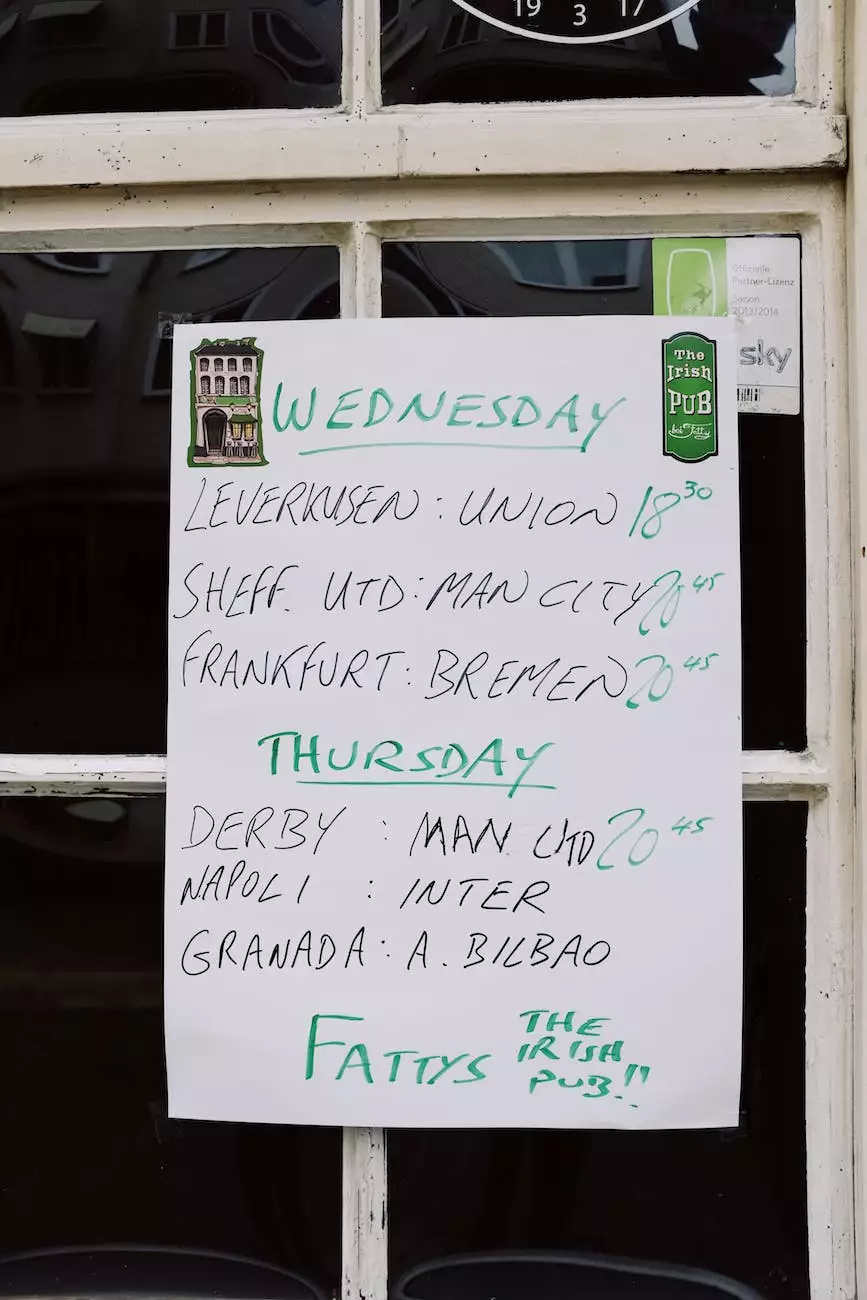 19 3 17
Offizielle
Partner-Lizenz
Saison
2013/2014
sky
The
Irish
PUB
bei Fatty
WEDNESDAY
LEVERKUSEN : UNION 18 30
SHEFF. UTD : MAN CITY 20 45
FRANKFURT : BREMEN 20 45
THURSDAY
DERBY : MAN UTD 20 45
NAPOLI : INTER
GRANADA : A. BILBAO
FATTYS THE
IRISH
PUB!!